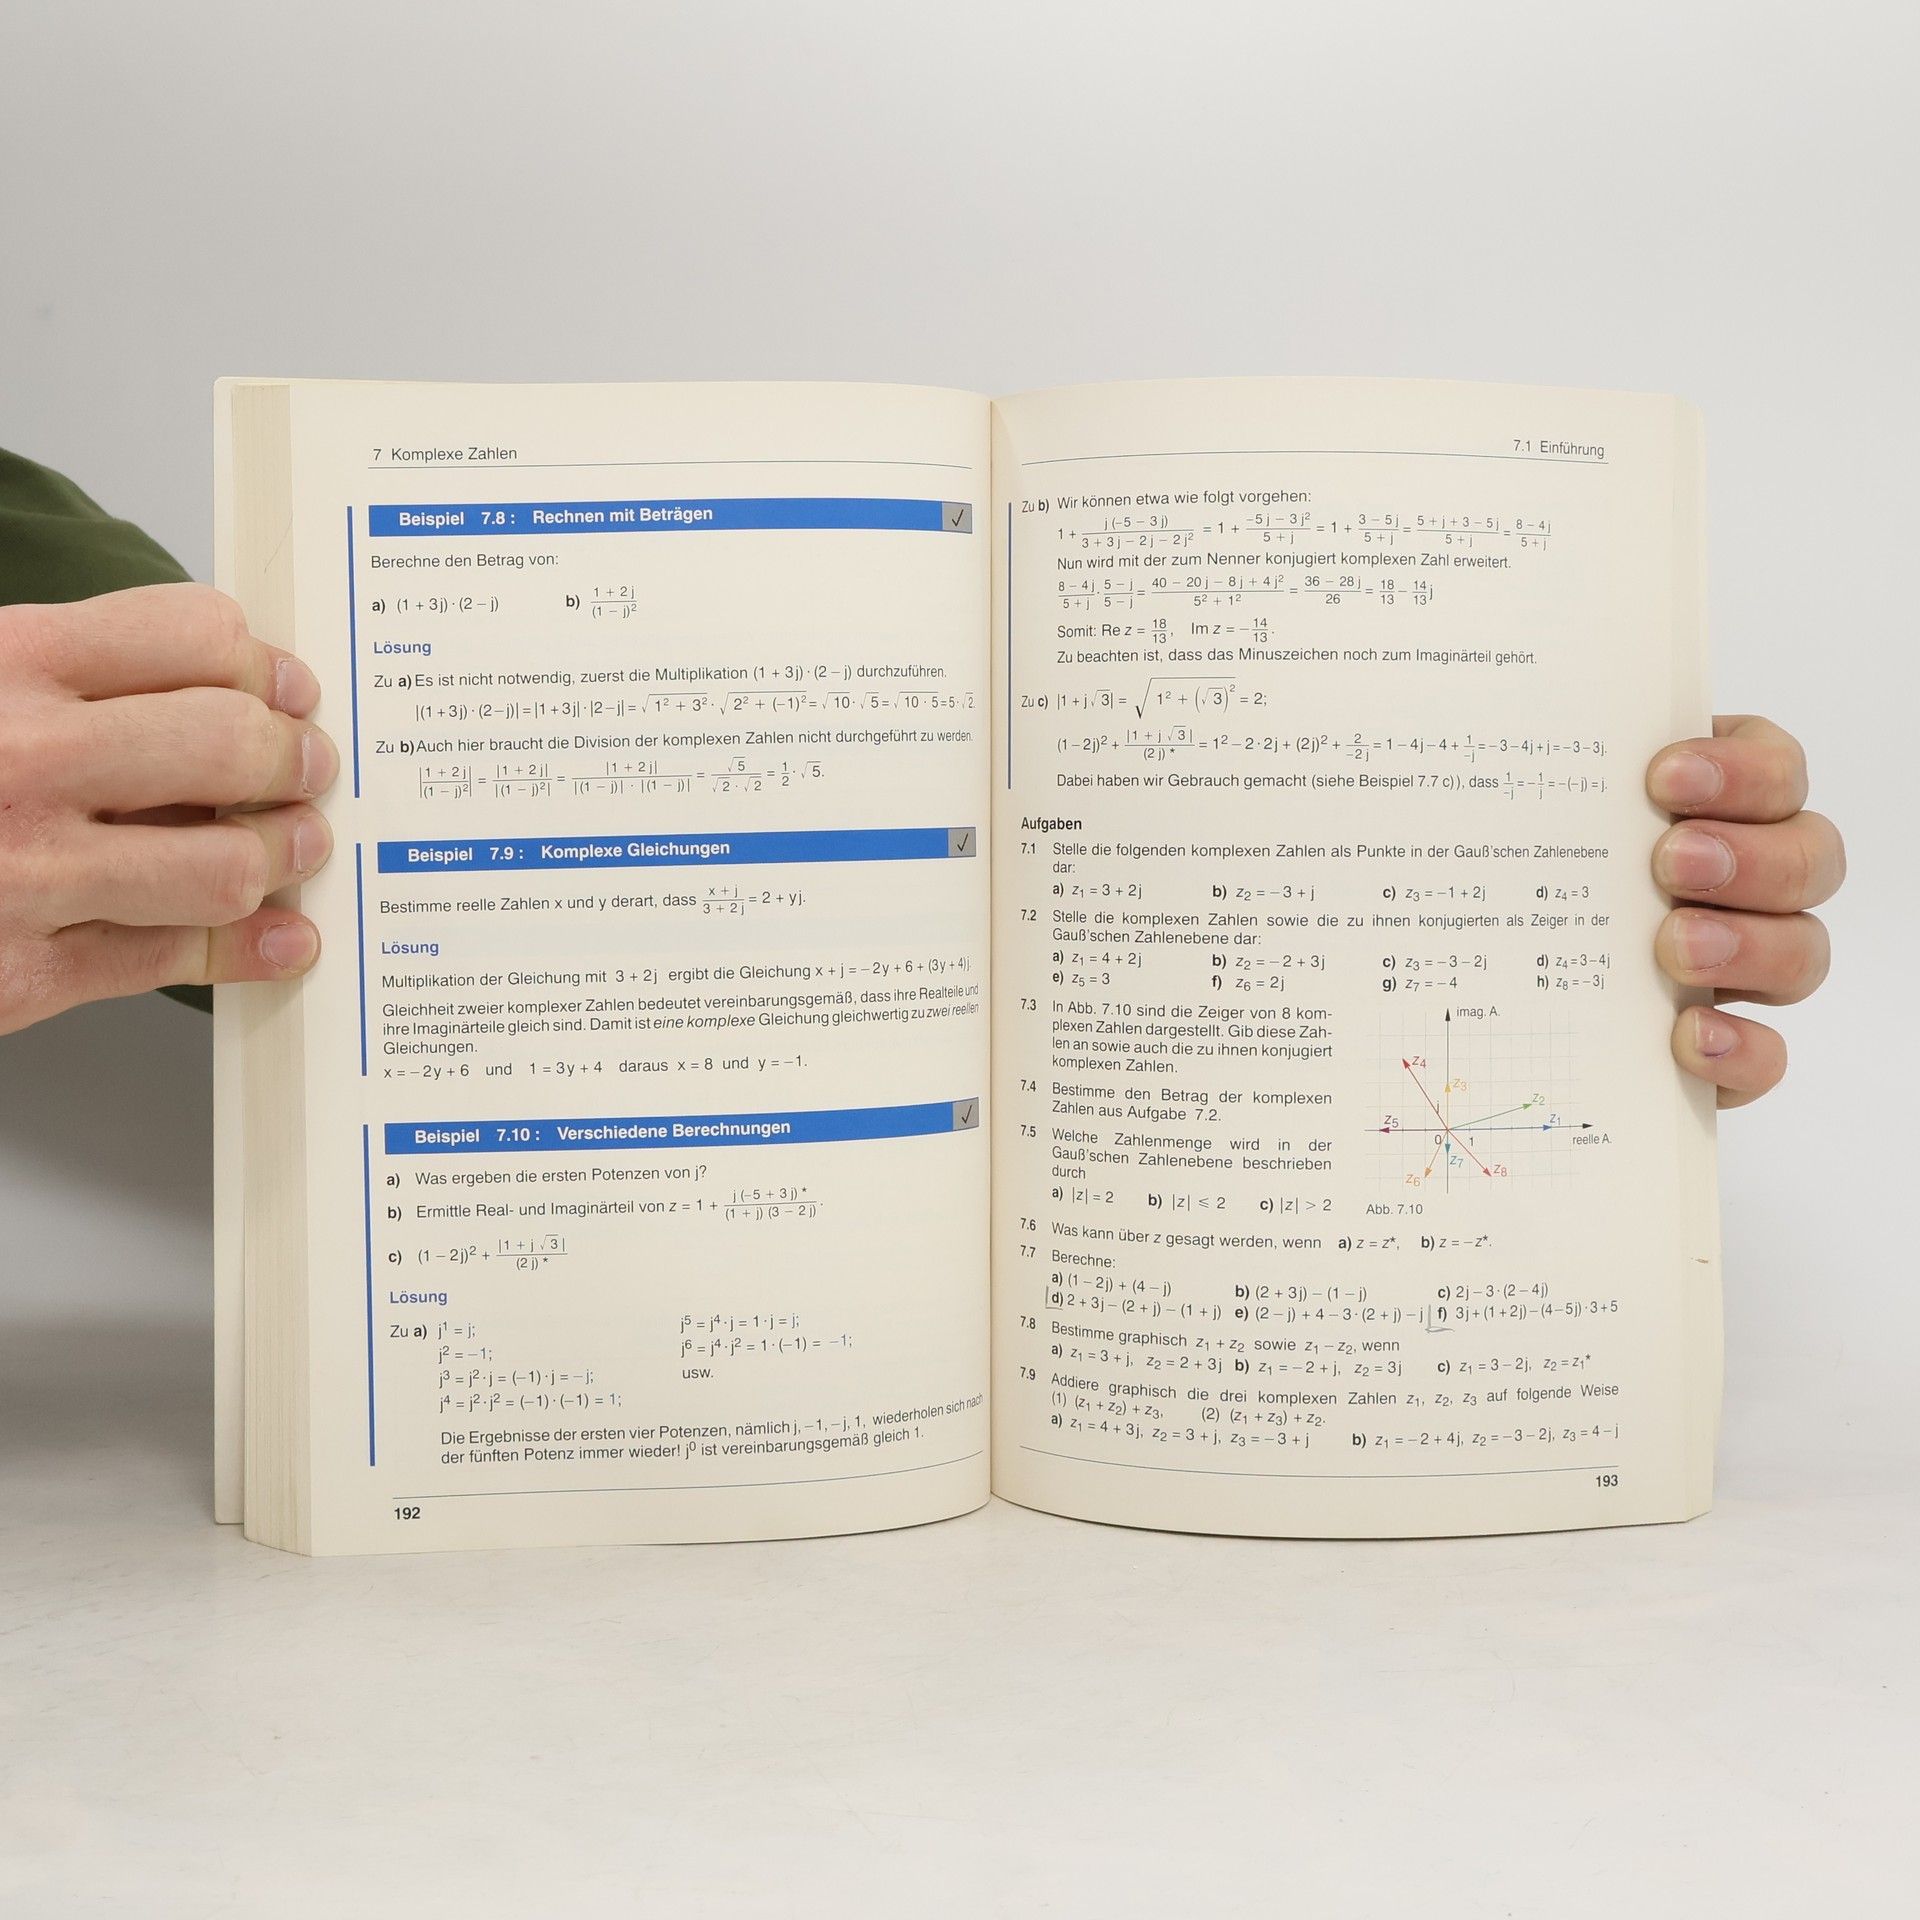 7 Komplexe Zahlen
Beispiel 7.8 : Rechnen mit Beträgen ✓
Berechne den Betrag von:
a) (1 + 3j) · (2 – j) b) (1 + 2j)/(1 – j)²
Lösung
Zu a) Es ist nicht notwendig, zuerst die Multiplikation (1 + 3j) · (2 – j) durchzuführen.
|(1 + 3j) · (2 – j)| = |1 + 3j| · |2 – j| = √(1² + 3²) · √(2² + (–1)²) = √10 · √5 = √(10 · 5) = 5 · √2.
Zu b) Auch hier braucht die Division der komplexen Zahlen nicht durchgeführt zu werden.
|(1 + 2j)/(1 – j)²| = |1 + 2j|/|(1 – j)²| = |1 + 2j|/(|(1 – j)| · |(1 – j)|) = √5/(√2 · √2) = 1/2 · √5.
Beispiel 7.9 : Komplexe Gleichungen ✓
Bestimme reelle Zahlen x und y derart, dass (x + j)/(3 + 2j) = 2 + yj.
Lösung
Multiplikation der Gleichung mit 3 + 2j ergibt die Gleichung x + j = – 2y + 6 + (3y + 4)j.
Gleichheit zweier komplexer Zahlen bedeutet vereinbarungsgemäß, dass ihre Realteile und
ihre Imaginärteile gleich sind. Damit ist eine komplexe Gleichung gleichwertig zu zwei reellen
Gleichungen.
x = – 2y + 6 und 1 = 3y + 4 daraus x = 8 und y = – 1.
Beispiel 7.10 : Verschiedene Berechnungen ✓
a) Was ergeben die ersten Potenzen von j?
b) Ermittle Real- und Imaginärteil von z = 1 + j (–5 + 3j)*/((1 + j) (3 – 2j)).
c) (1 – 2j)² + |1 + j √3|/(2j)*
Lösung
Zu a) j¹ = j; j⁵ = j⁴ · j = 1 · j = j;
j² = –1; j⁶ = j⁴ · j² = 1 · (–1) = –1;
j³ = j² · j = (–1) · j = – j; usw.
j⁴ = j² · j² = (–1) · (–1) = 1;
Die Ergebnisse der ersten vier Potenzen, nämlich j, –1, –j, 1, wiederholen sich nach
der fünften Potenz immer wieder! j⁰ ist vereinbarungsgemäß gleich 1.
192
7.1 Einführung
Zu b) Wir können etwa wie folgt vorgehen:
1 + j (–5 – 3j)/(3 + 3j – 2j – 2j²) = 1 + (–5j – 3j²)/(5 + j) = 1 + (3 – 5j)/(5 + j) = (5 + j + 3 – 5j)/(5 + j) = (8 – 4j)/(5 + j)
Nun wird mit der zum Nenner konjugiert komplexen Zahl erweitert.
(8 – 4j)/(5 + j) · (5 – j)/(5 – j) = (40 – 20j – 8j + 4j²)/(5² + 1²) = (36 – 28j)/26 = 18/13 – 14/13 j
Somit: Re z = 18/13, Im z = – 14/13.
Zu beachten ist, dass das Minuszeichen noch zum Imaginärteil gehört.
Zu c) |1 + j √3| = √(1² + (√3)²) = 2;
(1 – 2j)² + |1 + j √3|/(2j)* = 1² – 2 · 2j + (2j)² + 2/(–2j) = 1 – 4j – 4 + 1/–j = – 3 – 4j + j = – 3 – 3j.
Dabei haben wir Gebrauch gemacht (siehe Beispiel 7.7 c)), dass 1/–j = – 1/j = –(– j) = j.
Aufgaben
7.1 Stelle die folgenden komplexen Zahlen als Punkte in der Gauß'schen Zahlenebene
dar:
a) z₁ = 3 + 2j b) z₂ = – 3 + j c) z₃ = – 1 + 2j d) z₄ = 3
7.2 Stelle die komplexen Zahlen sowie die zu ihnen konjugierten als Zeiger in der
Gauß'schen Zahlenebene dar:
a) z₁ = 4 + 2j b) z₂ = – 2 + 3j c) z₃ = – 3 – 2j d) z₄ = 3 – 4j
e) z₅ = 3 f) z₆ = 2j g) z₇ = – 4 h) z₈ = – 3j
7.3 In Abb. 7.10 sind die Zeiger von 8 kom-
plexen Zahlen dargestellt. Gib diese Zah-
len an sowie auch die zu ihnen konjugiert
komplexen Zahlen.
7.4 Bestimme den Betrag der komplexen
Zahlen aus Aufgabe 7.2.
7.5 Welche Zahlenmenge wird in der
Gauß'schen Zahlenebene beschrieben
durch
a) |z| = 2 b) |z| ≤ 2 c) |z| > 2
imag. A.
z₄
z₃
z₂
j
z₅
z₁
0 1
reelle A.
z₇
z₆
z₈
Abb. 7.10
7.6 Was kann über z gesagt werden, wenn a) z = z*, b) z = – z*.
7.7 Berechne:
a) (1 – 2j) + (4 – j) b) (2 + 3j) – (1 – j) c) 2j – 3 · (2 – 4j)
d) 2 + 3j – (2 + j) – (1 + j) e) (2 – j) + 4 – 3 · (2 + j) – j f) 3j + (1 + 2j) – (4 – 5j) · 3 + 5
7.8 Bestimme graphisch z₁ + z₂ sowie z₁ – z₂, wenn
a) z₁ = 3 + j, z₂ = 2 + 3j b) z₁ = – 2 + j, z₂ = 3j c) z₁ = 3 – 2j, z₂ = z₁*
7.9 Addiere graphisch die drei komplexen Zahlen z₁, z₂, z₃ auf folgende Weise
(1) (z₁ + z₂) + z₃, (2) (z₁ + z₃) + z₂.
a) z₁ = 4 + 3j, z₂ = 3 + j, z₃ = – 3 + j b) z₁ = – 2 + 4j, z₂ = – 3 – 2j, z₃ = 4 – j
193